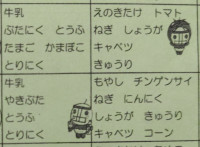 牛乳
ぶたにく とうふ
たまご かまぼこ
とりにく
えのきたけ トマト
ねぎ しょうが
キャベツ
きゅうり
牛乳
やきぶた
とうふ
とりにく
もやし チンゲンサイ
ねぎ にんにく
しょうが きゅうり
キャベツ コーン